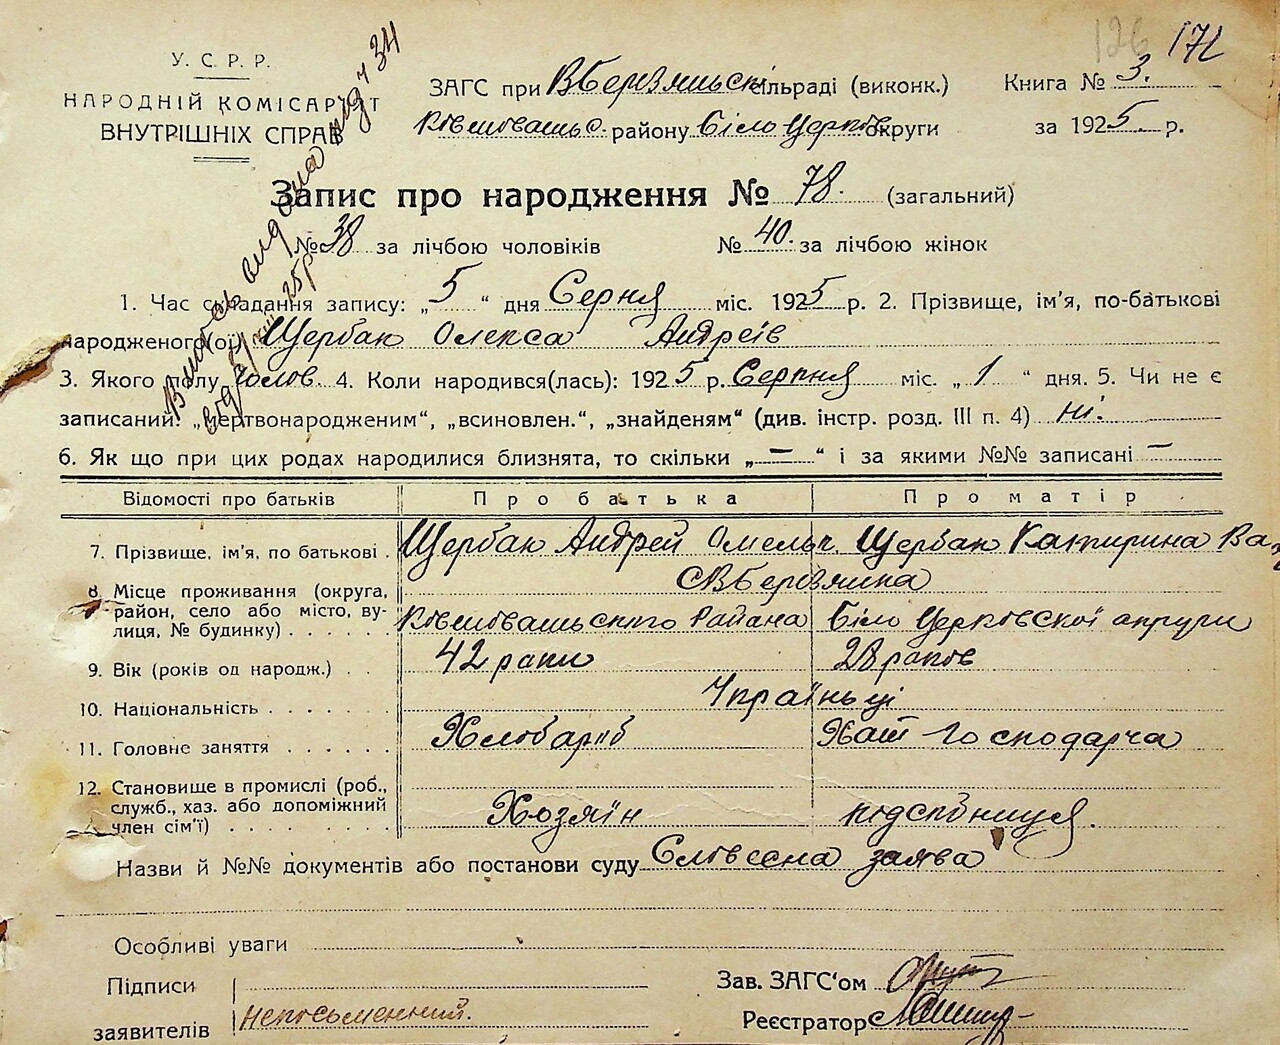 126 172
У. С. Р. Р.
НАРОДНІЙ КОМІСАРІЯТ
ВНУТРІШНІХ СПРАВ
ЗАГС при В Березянськ сільраді (виконк.) Книга № 3.
району Біло Церков округи за 1925 р.
Запис про народження № 78. (загальний)
№ 38 за лічбою чоловіків № 40. за лічбою жінок
1. Час складання запису: „5“ дня Серня міс. 1925 р. 2. Прізвище, ім’я, по-батькові
народженого(ої) Щербак Олекса Андреїв
3. Якого полу Чолов. 4. Коли народився(лась): 1925 р. Серпня міс. „1“ дня. 5. Чи не є
записаний: „мертвонародженим“, „всиновлен.“, „знайденям“ (див. інстр. розд. III п. 4) ні.
6. Як що при цих родах народилися близнята, то скільки „—“ і за якими №№ записані —
Відомості про батьків Про батька Про матір
7. Прізвище, ім’я, по батькові . Щербак Андрей Омельк. Щербак Катирина Ва
8. Місце проживання (округа, район, село або місто, вулиця, № будинку) . . . . . . С В Березянка
Района Біло Церковської округи
9. Вік (років од народж.) . . 42 роки 28 років
10. Національність . . . . . . . Українці
11. Головне заняття . . . . . . Хлоборіб Хат Господарча
12. Становище в промислі (роб., служб., хаз. або допоміжний член сім’ї) . . . . . . . . Хозяїн подспівниця.
Назви й №№ документів або постанови суду Словесна заява
Особливі уваги
Підписи
заявителів Неписьменний.
Зав. ЗАГС‘ом
Реєстратор